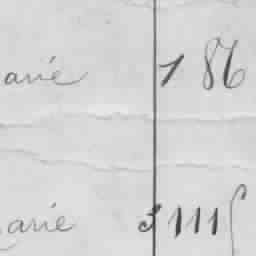 arié 1 86
arie 3 111